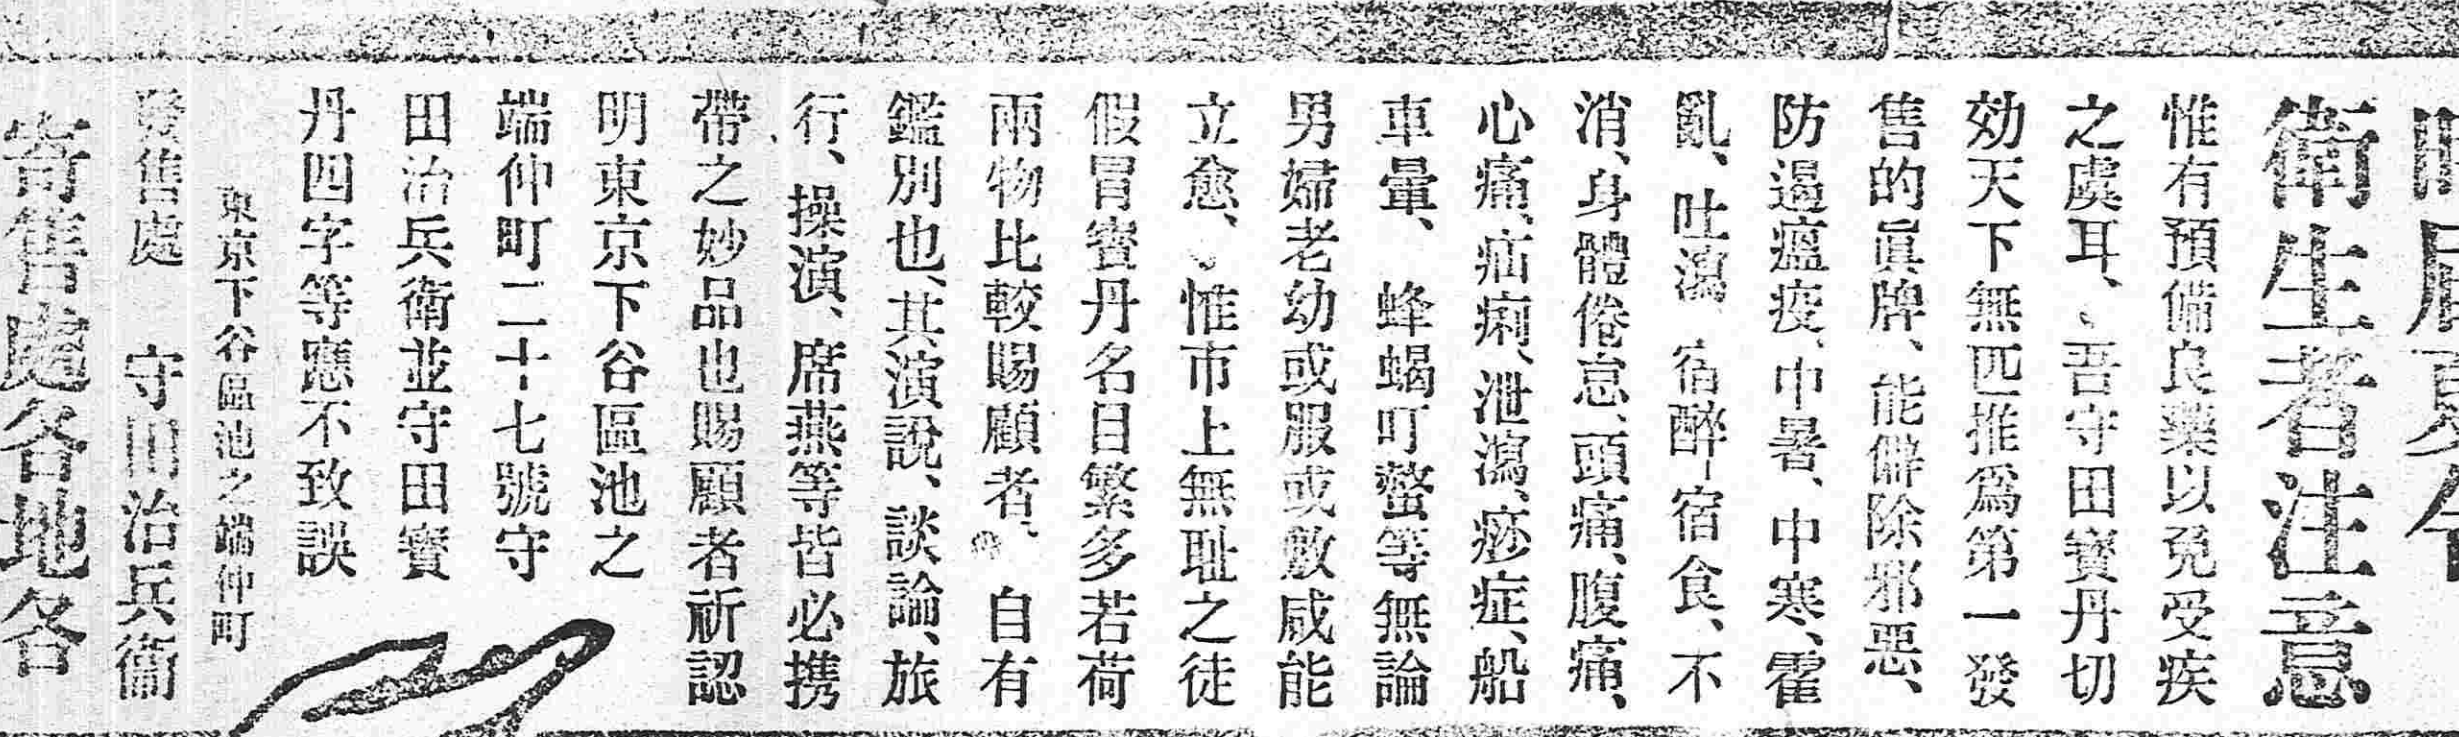 時屆夏令
衛生者注意
惟有預備良藥以免受疾
之虞耳、吾守田寳丹切
効天下無匹推爲第一發
售的眞牌、能僻除邪惡、
防遏瘟疫、中暑、中寒、霍
亂、吐瀉、宿醉、宿食、不
消、身體倦怠、頭痛、腹痛、
心痛、疝痢、泄瀉、痧症、船
車暈、蜂蝎叮螫等無論
男婦老幼或服或敷咸能
立愈、惟市上無耻之徒
假冒寳丹名目繁多若荷
兩物比較賜顧者、自有
鑑別也、其演說、談論、旅
行、操演、席燕等皆必携
帶之妙品也賜顧者祈認
明東京下谷區池之
端仲町二十七號守
田治兵衛並守田寳
丹四字等應不致誤
東京下谷區池之端仲町
發售處 守田治兵衛
寄售處各地各